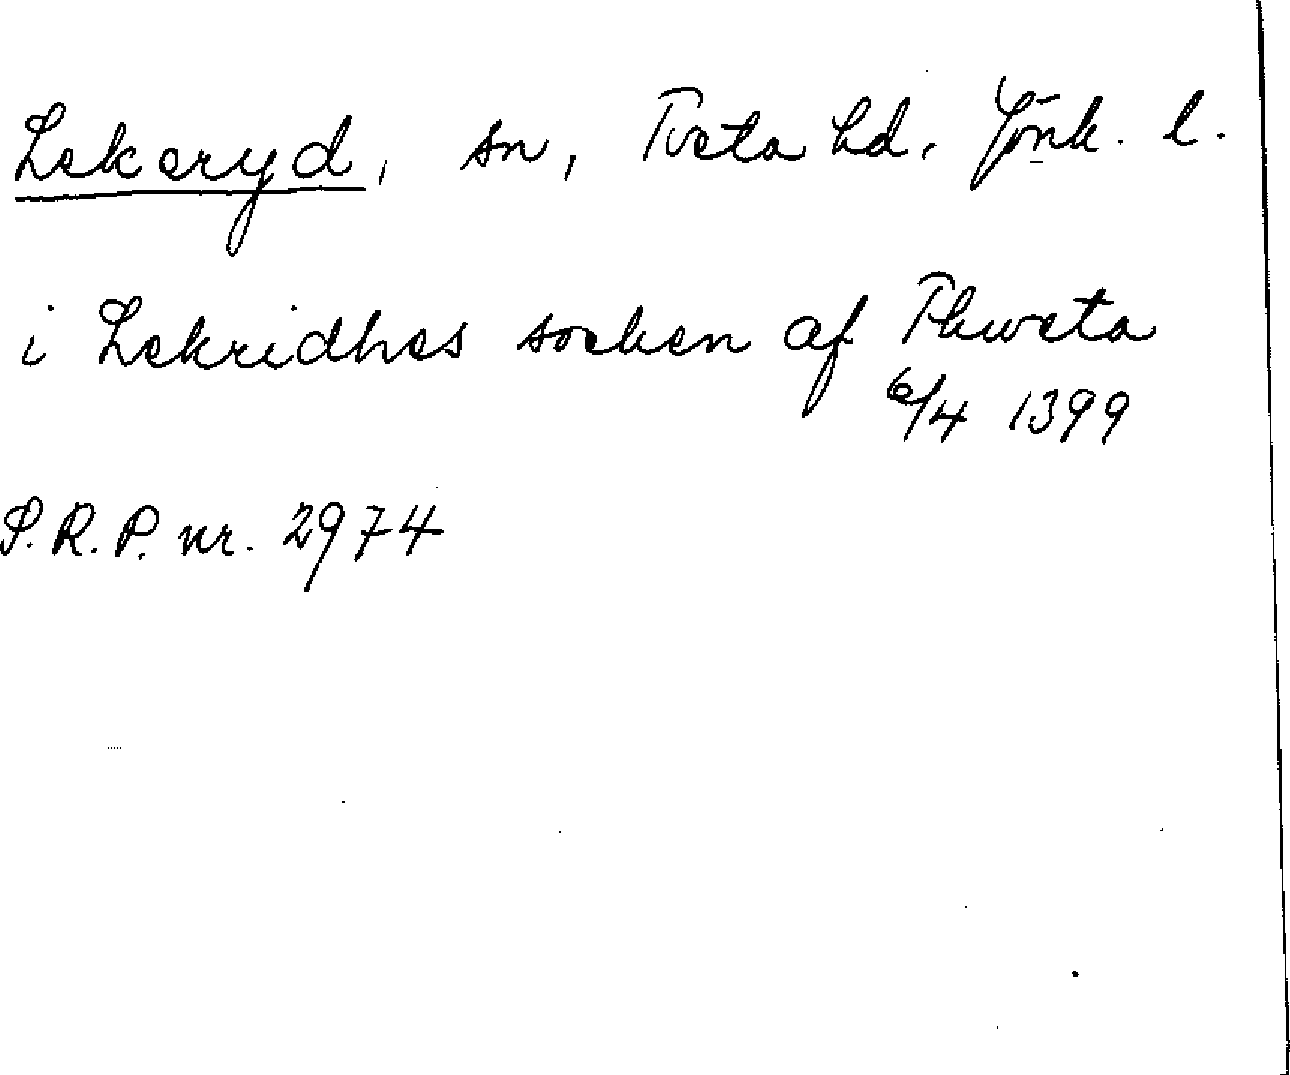 Lekeryd, sn, Tveta hd, Jönk. l.
i Lekridhes socken af Thweta
6/4 1399
S.R.P. nr. 2974